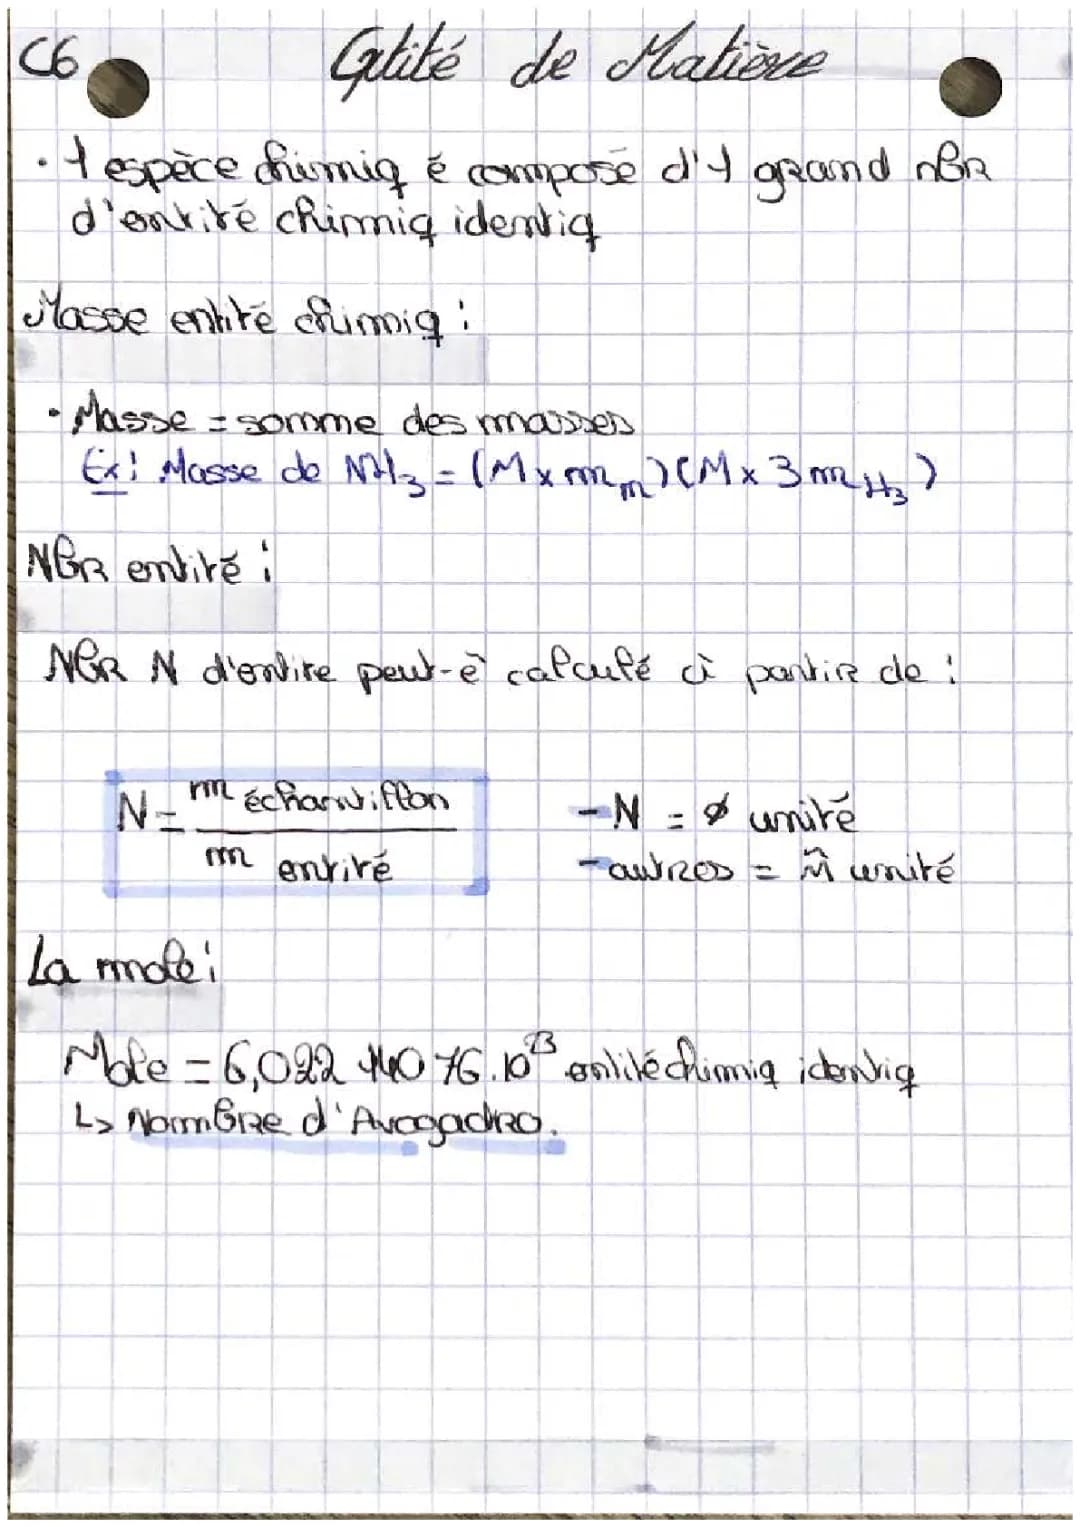 C6 Qtité de Matière
• 1 espèce chimiq é composé d'1 grand nbr
d'entité chimiq identiq
Masse entité chimiq :
• Masse = somme des masses
Ex: Masse de NH₃ = (M x m m)(M x 3 m H₃)
Nbr entité :
Nbr N d'entite peut-ê calculé à partir de :
N = m échantillon / m entité
- N = ø unité
- autres = m̂ unité
La mole :
Mole = 6,022 140 76.10²³ entité chimiq identiq
↳ Nombre d'Avogadro.